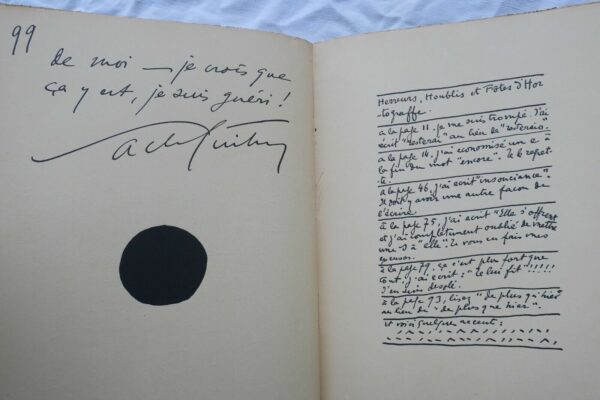 99
de moi — je crois que
ça y est, je suis guéri !
Sacha Guitry
Herreurs, Houblis et Fôtes d'Hor
-tograffe.
à la page 11, je me suis trompé. J'ai
écrit "resterai" au lieu de "resterais".
à la page 14, j'ai économisé un e à
la fin du mot "encore". Je le regret-
te.
à la page 46, j'ai écrit "insounciance".
Il doit y avoir une autre façon de
l'écrire.
à la page 75, j'ai écrit "Elle s'offrent"
et j'ai complètement oublié de mettre
une S à "elle". Je vous en fais mes
excuses.
à la page 79, ça c'est plus fort que
tout, j'ai écrit : "Je lui fit" !!!!!
J'en suis désolé.
à la page 93, lisez "de plus qu'hier"
au lieu de "de plus que hier".
et voici quelques accents :